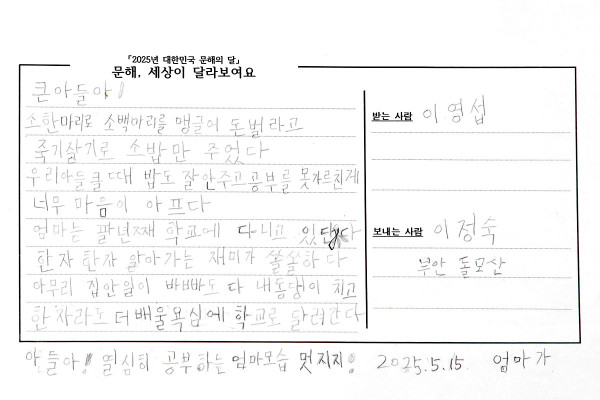 「2025년 대한민국 문해의 달」
문해, 세상이 달라보여요
큰아들아!
소한마리로 소백마리를 맹글어 돈벌라고
죽기살기로 소밥만 주었다
우리아들클때 밥도 잘안주고공부를 못가르친게
너무 마음이 아프다
엄마는 팔년째 학교에 다니고 있단다
한자 한자 알아가는 재미가 쏠쏠하다
아무리 집안일이 바빠도 다 내동댕이 치고
한자라도 더 배울욕심에 학교로 달려간다
아들아! 열심히 공부하는 엄마모습 멋지지! 2025.5.15. 엄마가
받는 사람 이영섭
보내는 사람 이정숙
부안 돌모산